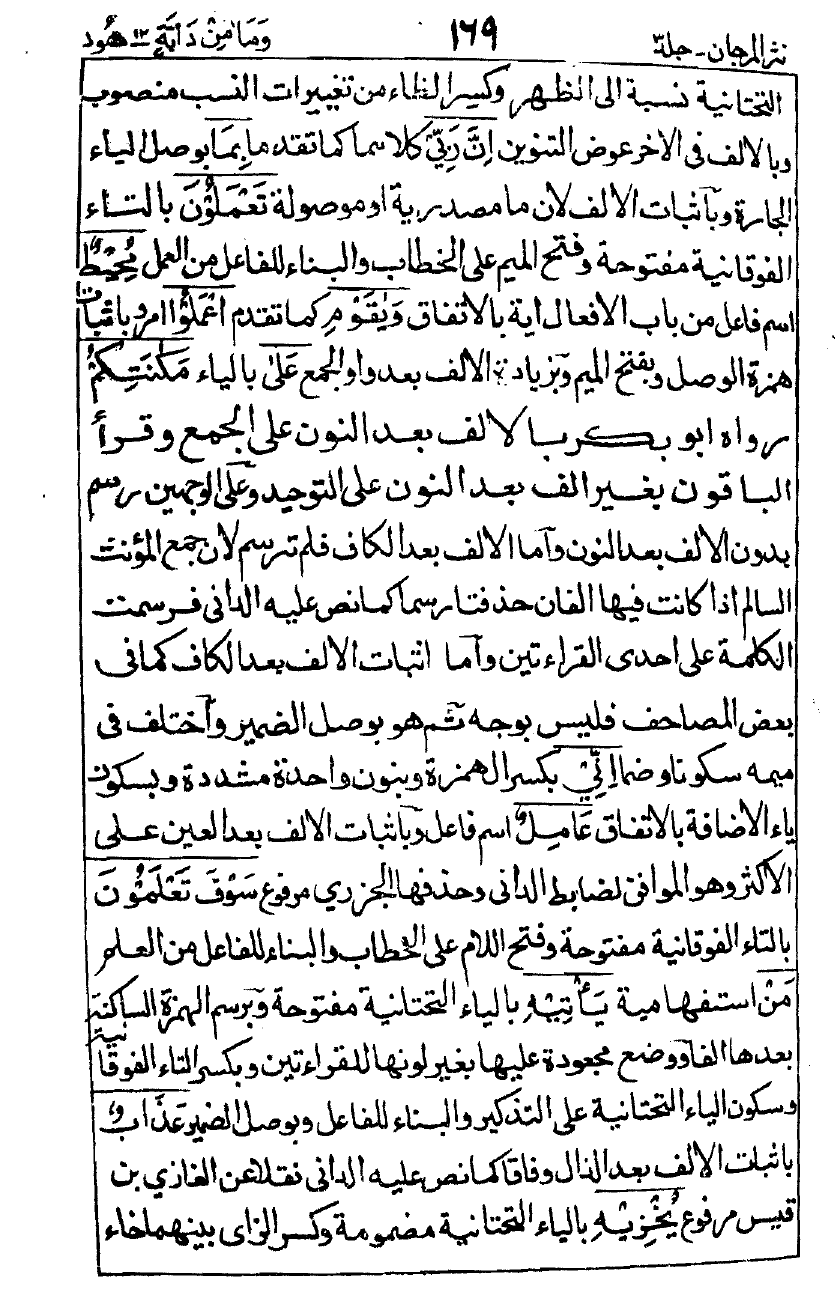 نثر المرجان - جلد٣ ١٦٩ وَمَا مِنْ دَابَّةٍ ١٢ هُود
التحتانية نسبة الى الظهر وكسر الظاء من تغييرات النسب منصوب
وبالالف فى الاخر عوض التنوين اِنَّ رَبِّيْ كلاسما كما تقدم مابِمَا بوصل الياء
الجارة وبآثبات الالف لان ما مصدرية او موصولة تَعْمَلُوْنَ بالتاء
الفوقانية مفتوحة وفتح الميم على الخطاب والبناء للفاعل من العمل مُحِيْطٌ
اسم فاعل من باب الافعال اية بالاتفاق وَيٰقَوْمِ كما تقدم اعْمَلُوْا امر باثبات
همزة الوصل وبفتح الميم وبزيادة الالف بعد واو الجمع عَلٰى بالياء مَكَانَتِكُمْ
رواه ابو بكر بالالف بعد النون على الجمع وقرأ
الباقون بغير الف بعد النون على التوحيد وعلى الوجهين رسم
بدون الالف بعد النون وآما الالف بعد الكاف فلم ترسم لان جمع المؤنث
السالم اذا كانت فيها الفان حذفتا رسما كما نص عليه الدانى فرسمت
الكلمة على احدى القراءتين وآما اثبات الالف بعد الكاف كما فى
بعض المصاحف فليس بوجه ثم هو بوصل الضمير وآختلف فى
ميمه سكونا وضما اِنِّيْ بكسر الهمزة وبنون واحدة مشددة وبسكون
ياء الاضافة بالاتفاق عَامِلٌ اسم فاعل وبآثبات الالف بعد العين على
الاكثر وهو الموافق لضابط الدانى وحذفها الجزري مرفوع سَوْفَ تَعْلَمُوْنَ
بالتاء الفوقانية مفتوحة وفتح اللام على الخطاب والبناء للفاعل من العلم
مَنْ استفهامية يَأْتِيْهِ بالياء التحتانية مفتوحة وبرسم الهمزة الساكنة
بعدها الفا ووضع مجعودة عليها بغير لونها للقراءتين وبكسر التاء الفوقانية
وسكون الياء التحتانية على التذكير والبناء للفاعل وبوصل الضمير عَذَابٌ
باثبات الالف بعد الذال وفاقا كما نص عليه الدانى نقلا عن الغازي بن
قيس مرفوع يُخْزِيْهِ بالياء التحتانية مضمومة وكسر الزاى بينهما خاء